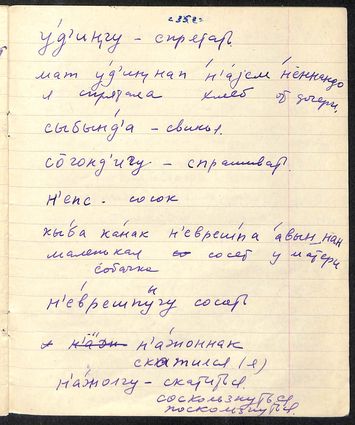 у́д'иӊгу – спрятать
мат у́д'иӊнап н'а́јем не́ннандо
я спрятала хлеб от дочери,
сыбынд'а – свинья.
со̄гонд'игу – спрашивать.
н'епс. сосок
кыба канак н'евреш́па а́вын_нан
маленькая сосет у матери
собачка
н'е́врешпы̨гу сосать
н'а́жоннак
скатился (я)
н'а́жолгу – скатиться.
соскользнуться
поскользнуться.